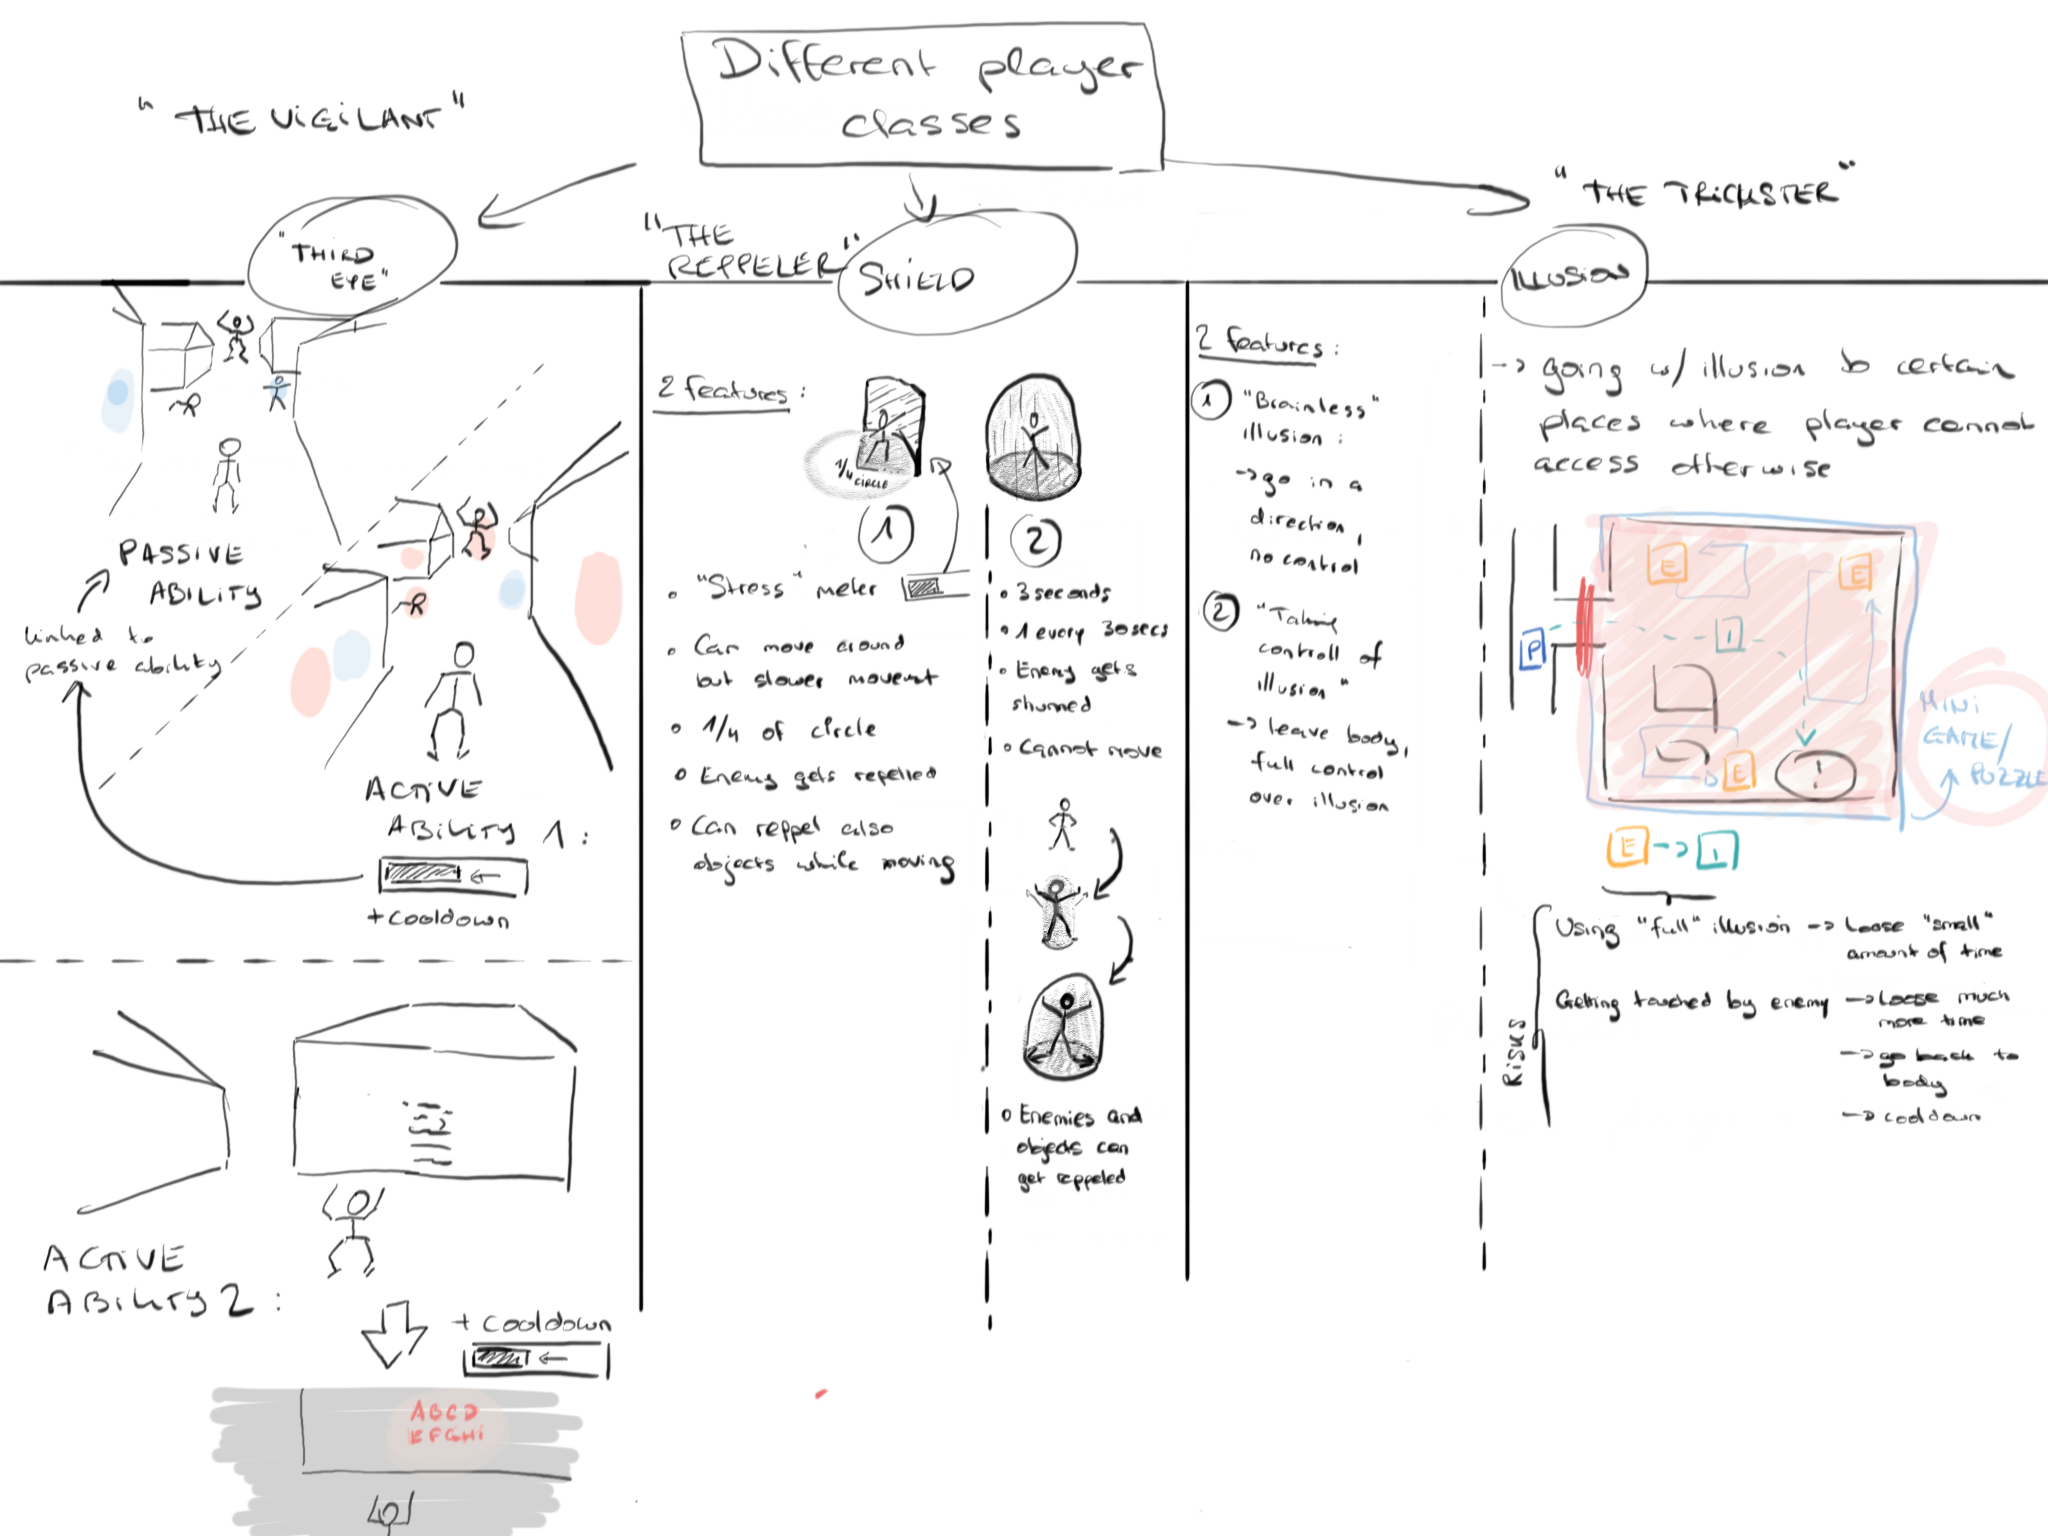 Different player
classes
"THE ViGiLANT"
"THiRD
EYE"
PASSIVE
ABiLiTY
linked to
passive ability
ACTiVE
ABiLiTY 1:
+ cooldown
ACTiVE
ABiLiTY 2:
+ cooldown
ABCD
EFGHi
"THE
REPPELER"
SHiELD
2 features:
1/4 CIRCLE
1
2
"Stress" meter
Can move around
but slower movemt
1/4 of circle
Enemy gets repelled
Can reppel also
objects while moving
3 seconds
1 every 30 secs
Enemy gets
stunned
Cannot move
Enemies and
objects can
get reppeled
"THE TRiCKSTER"
iLLUSiON
2 features:
1 "Brainless"
illusion:
-> go in a
direction,
no control
2 "Taking
controll of
illusion"
-> leave body,
full control
over illusion
-> going w/ illusion to certain
places where player cannot
access otherwise
E
E
P
I
E
!
MiNi
GAME/
PUZZLE
E -> I
RiSKS
Using "full" illusion -> Loose "small"
amount of time
Getting touched by enemy -> Loose much
more time
-> go back to
body
-> cooldown